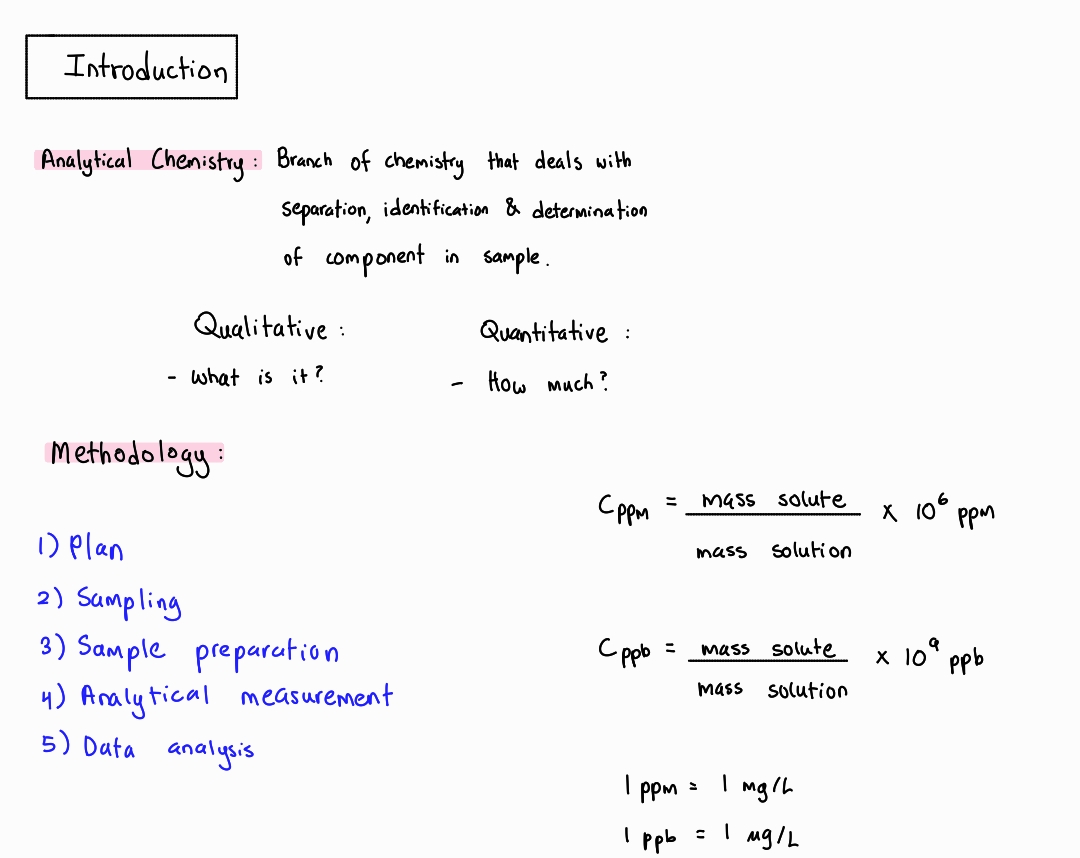 Introduction
Analytical Chemistry : Branch of chemistry that deals with
separation, identification & determination
of component in sample.
Qualitative :
- what is it?
Quantitative :
- How much?
Methodology :
1) Plan
2) Sampling
3) Sample preparation
4) Analytical measurement
5) Data analysis
Cppm = mass solute / mass solution x 10⁶ ppm
Cppb = mass solute / mass solution x 10⁹ ppb
1 ppm = 1 mg/L
1 ppb = 1 µg/L